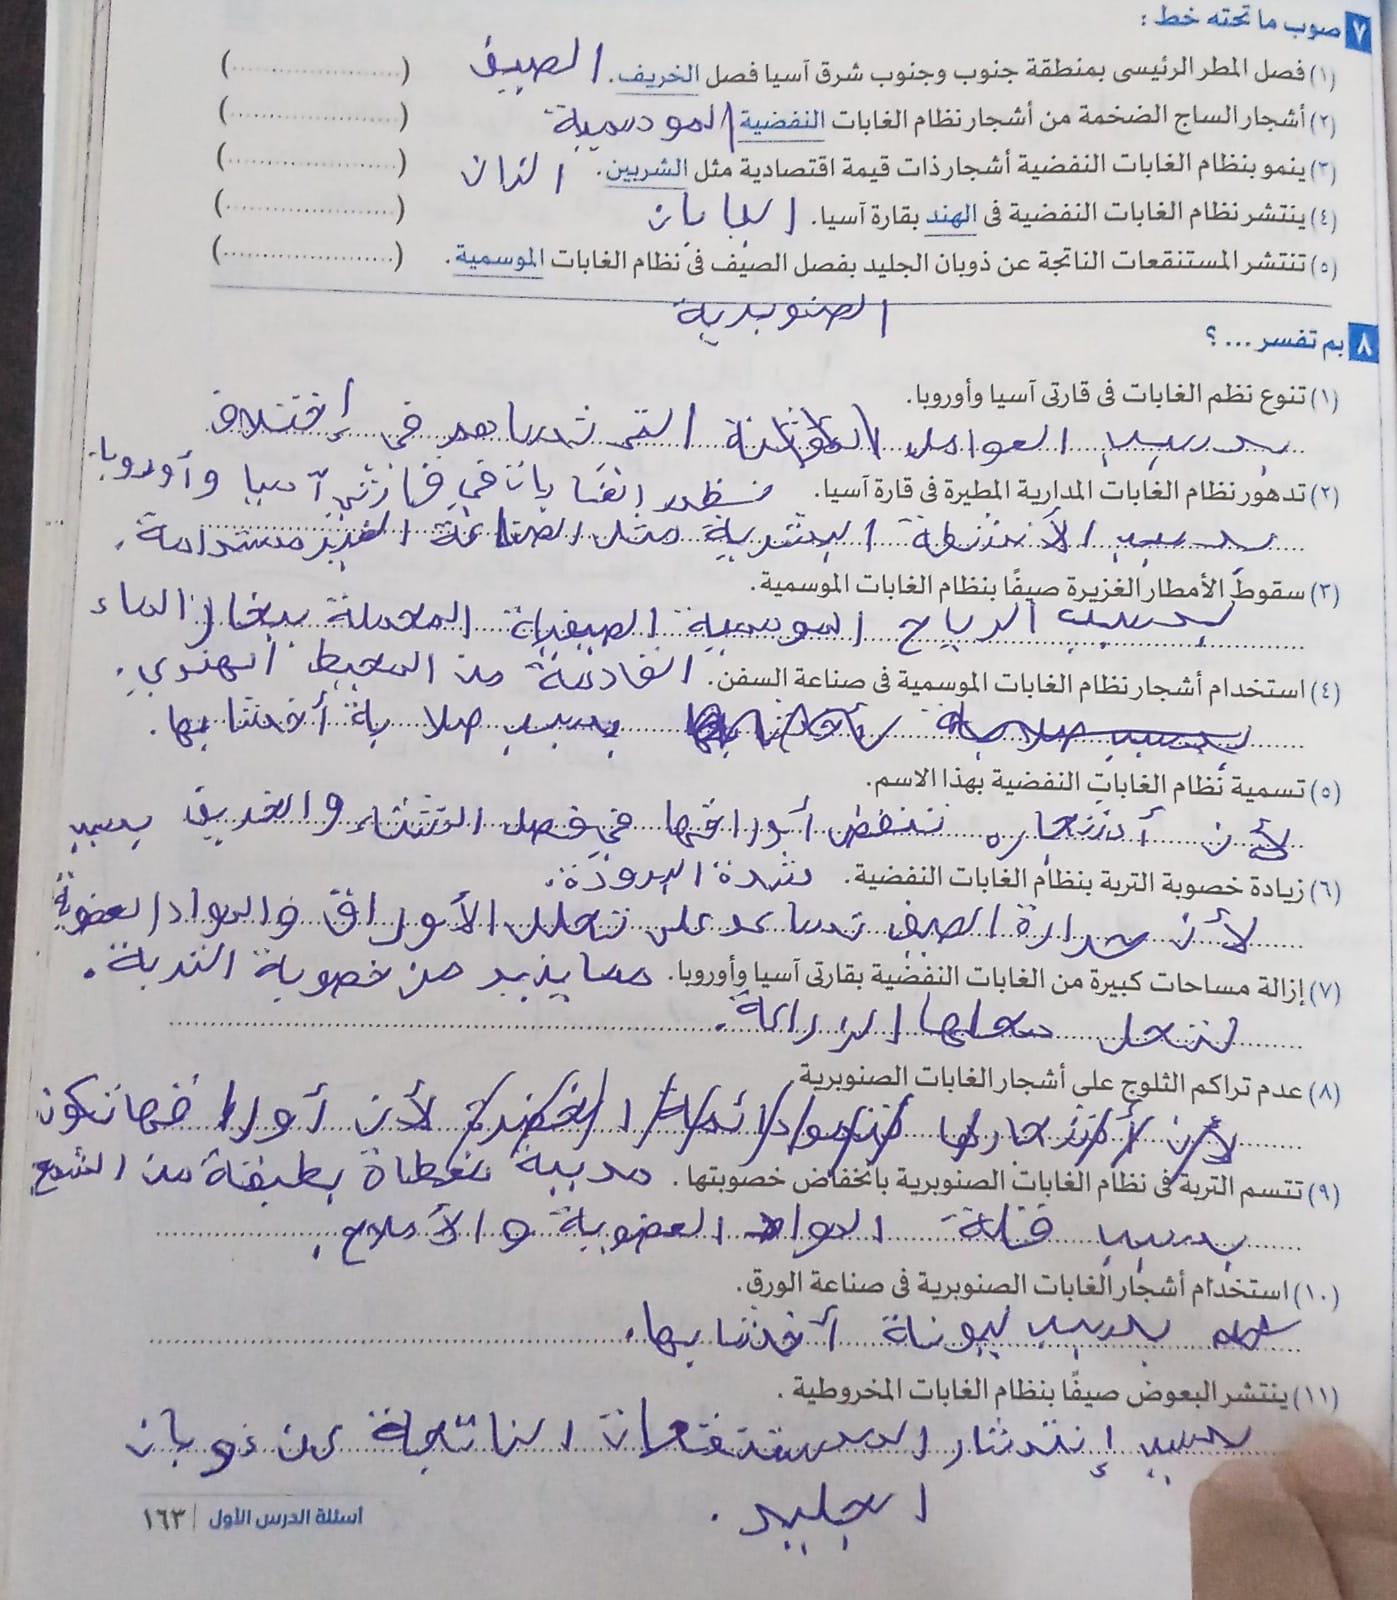 ٧ صوب ما تحته خط :
(١) فصل المطر الرئيسى بمنطقة جنوب وجنوب شرق آسيا فصل الخريف. الصيف (....................)
(٢) أشجار الساج الضخمة من أشجار نظام الغابات النفضية الموسمية (....................)
(٣) ينمو بنظام الغابات النفضية أشجار ذات قيمة اقتصادية مثل الشربين. الزان (....................)
(٤) ينتشر نظام الغابات النفضية فى الهند بقارة آسيا. اليابان (....................)
(٥) تنتشر المستنقعات الناتجة عن ذوبان الجليد بفصل الصيف فى نظام الغابات الموسمية. (....................)
الصنوبرية
٨ بم تفسر ... ؟
(١) تنوع نظم الغابات فى قارتى آسيا وأوروبا.
بسبب العوامل التى تساهم فى إختلاف
(٢) تدهور نظام الغابات المدارية المطيرة فى قارة آسيا. نظم الغابات في قارتي آسيا وأوروبا.
بسبب الأنشطة البشرية مثل الغير مستدامة.
(٣) سقوط الأمطار الغزيرة صيفًا بنظام الغابات الموسمية.
بسبب الرياح الموسمية الصيفية المحملة ببخار الماء
(٤) استخدام أشجار نظام الغابات الموسمية فى صناعة السفن. القادمة من المحيط الهندي.
بسبب صلابة أخشابها.
(٥) تسمية نظام الغابات النفضية بهذا الاسم.
لأن أشجاره تنفض أوراقها في فصل الشتاء والخريف بسبب
(٦) زيادة خصوبة التربة بنظام الغابات النفضية. شدة البرودة.
لأن حرارة الصيف تساعد على تحلل الأوراق والمواد العضوية
(٧) إزالة مساحات كبيرة من الغابات النفضية بقارتى آسيا وأوروبا. مما يزيد من خصوبة التربة.
لتحل محلها الزراعة.
(٨) عدم تراكم الثلوج على أشجار الغابات الصنوبرية
لأن أوراقها تكون
(٩) تتسم التربة فى نظام الغابات الصنوبرية بانخفاض خصوبتها. مدببة مغطاة بطبقة من الشمع
بسبب قلة المواد العضوية و الأملاح.
(١٠) استخدام أشجار الغابات الصنوبرية فى صناعة الورق.
بسبب ليونة أخشابها.
(١١) ينتشر البعوض صيفًا بنظام الغابات المخروطية .
بسبب إنتشار المستنقعات الناتجة عن ذوبان
الجليد.
أسئلة الدرس الأول | ١٦٣